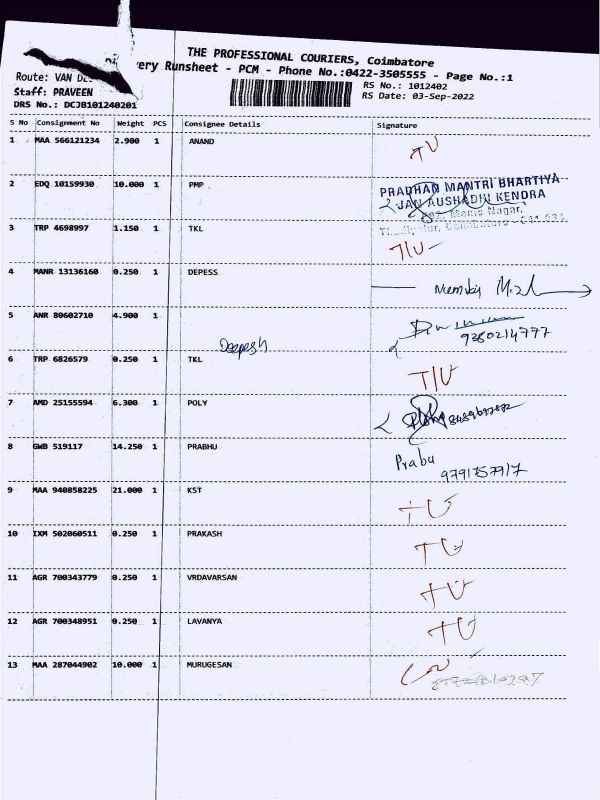 THE PROFESSIONAL COURIERS, Coimbatore
ery Runsheet - PCM - Phone No.:0422-3505555 - Page No.:1
Route: VAN
Staff: PRAVEEN
RS No.: 1012402
DRS No.: DCJB101240201
RS Date: 03-Sep-2022
S No Consignment No Weight PCS Consignee Details Signature
1 MAA 566121234 2.900 1 ANAND TU
2 EDQ 10159930 10.000 1 PMP
PRADHAN MANTRI BHARTIYA
JAN AUSHADHI KENDRA
Nagar,
3 TRP 4698997 1.150 1 TKL T/U
4 MANR 13136160 0.250 1 DEPESS
5 ANR 80602710 4.900 1
9360214777
Deepesh
6 TRP 6826579 0.250 1 TKL T/U
7 AMD 25155594 6.300 1 POLY
8 GWB 519117 14.250 1 PRABHU Prabu
9791757917
9 MAA 940858225 21.000 1 KST TU
10 IXM 502060511 0.250 1 PRAKASH TU
11 AGR 700343779 0.250 1 VRDAVARSAN TU
12 AGR 700348951 0.250 1 LAVANYA TU
13 MAA 287044902 10.000 1 MURUGESAN